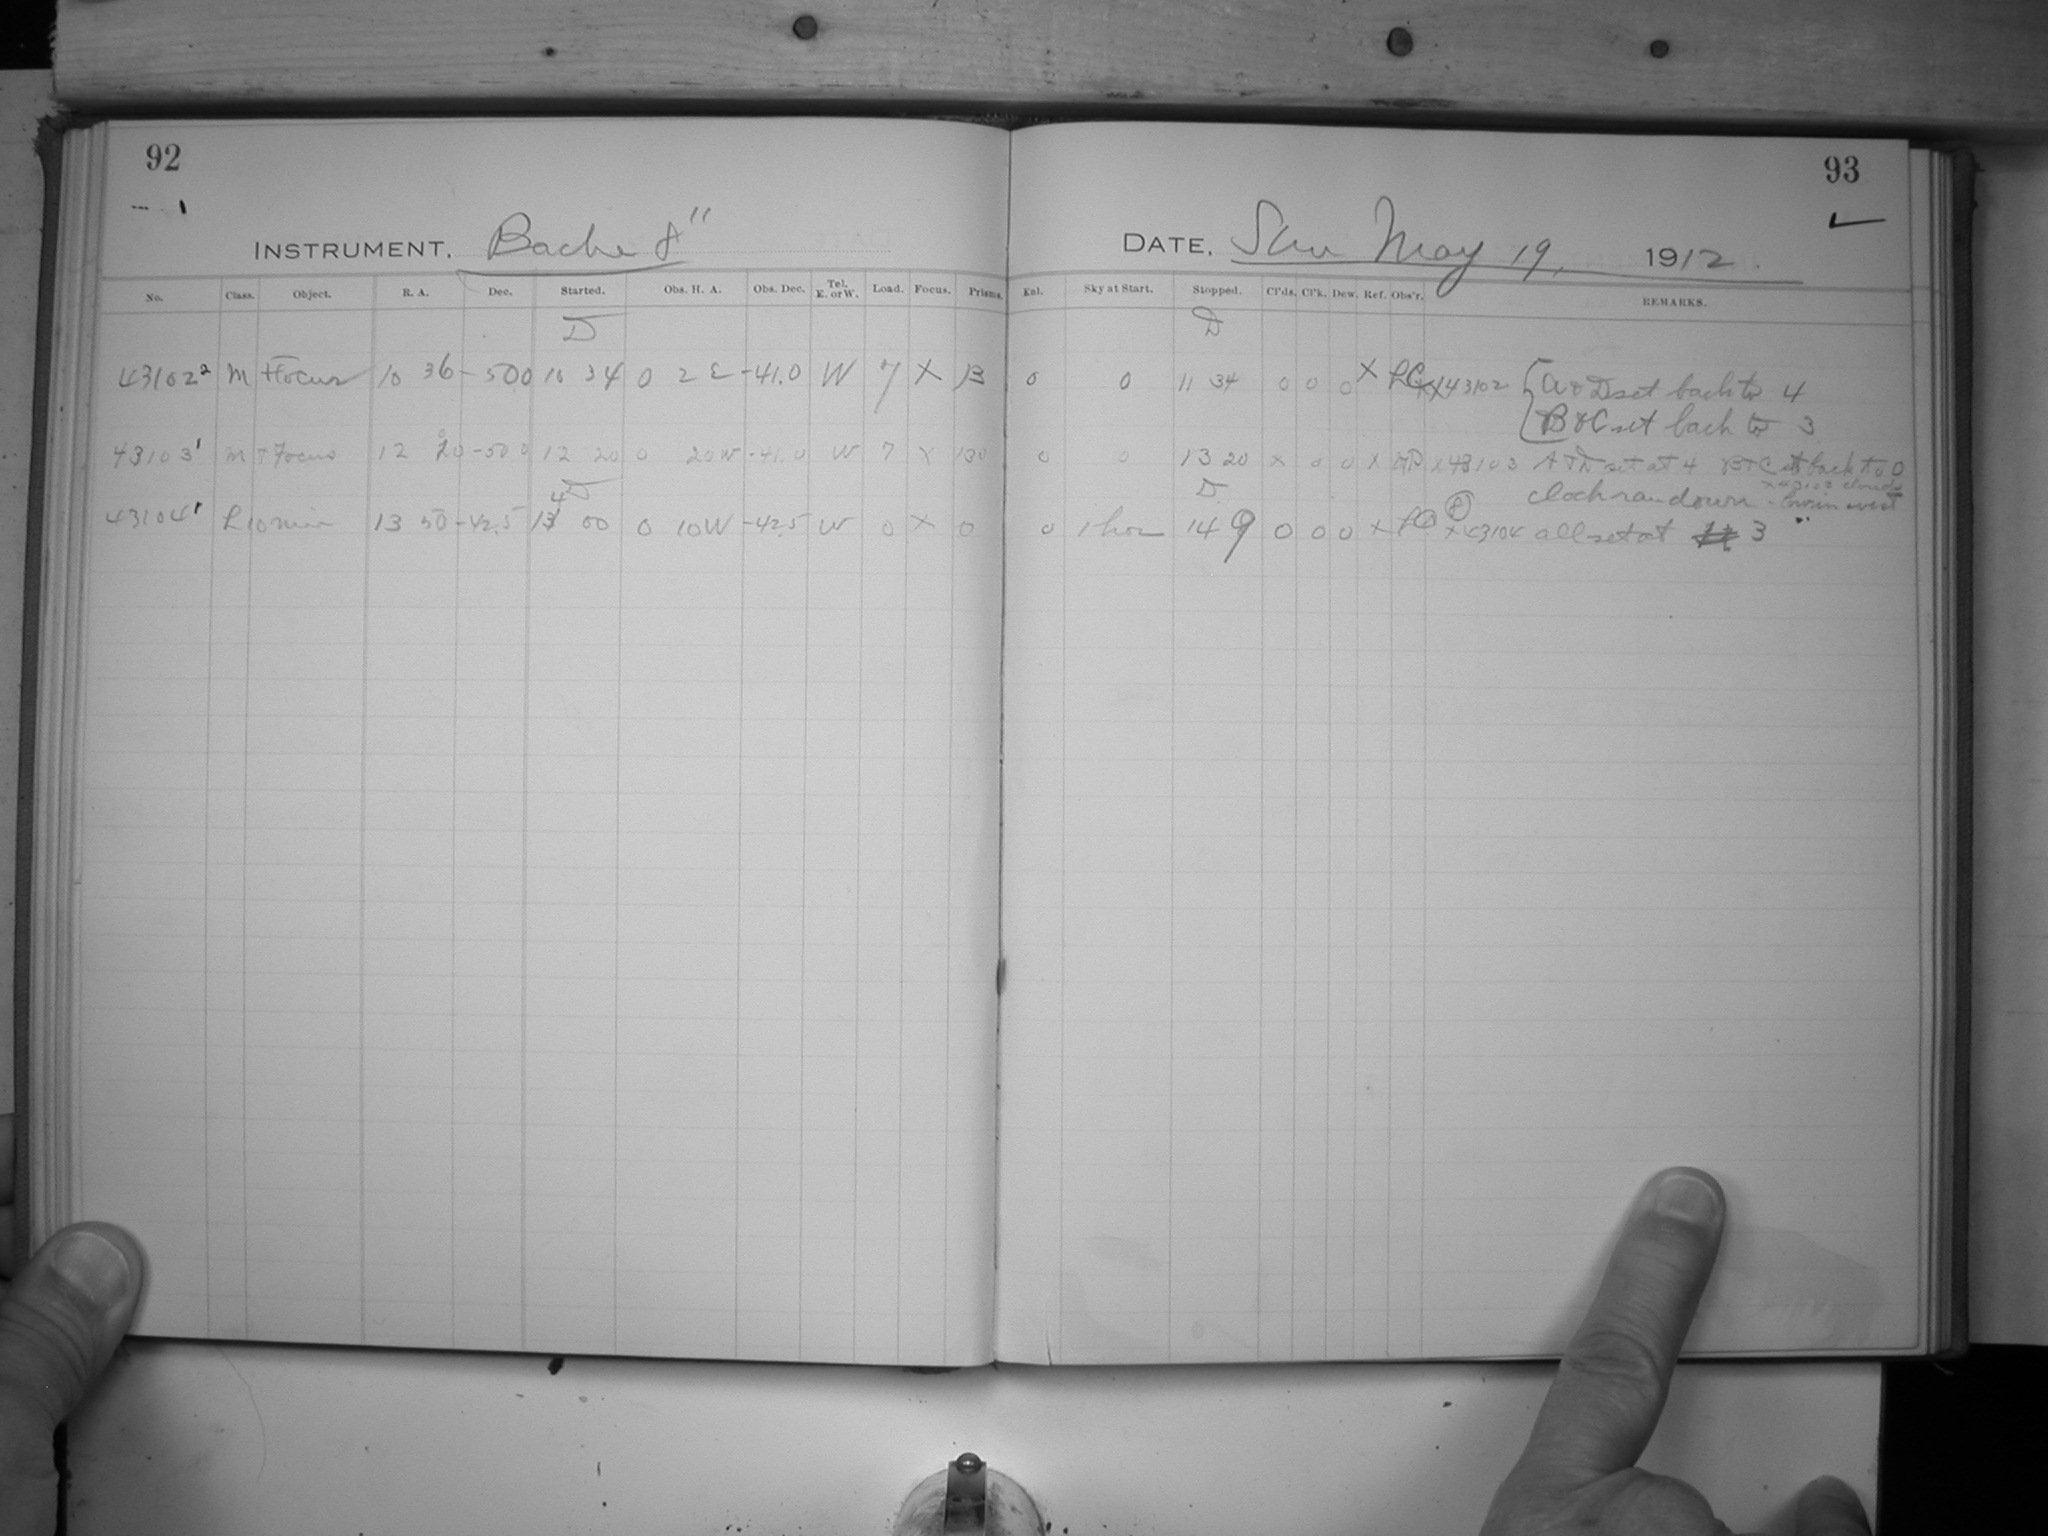 92
93
INSTRUMENT. Bache 8"
DATE. Sun May 19, 1912.
No. Class. Object. R. A. Dec. Started. Obs. H. A. Obs. Dec. Tel. E. or W. Load. Focus. Prisms. Enl. Sky at Start. Stopped. Cl'ds. Cl'k. Dew. Ref. Obs'r. REMARKS.
D D
43102² M Focus 10 36 -500 10 34 0 2 E -41.0 W 7 X 13 0 0 11 34 0 0 0 X X43102 A & D set back to 4
B & C set back to 3
43103¹ M Focus 12 20 -500 12 20 0 20W -41.0 W 7 X 130 0 0 13 20 X 0 0 X X43103 A & D set at 4 B & C set back to 0
X43103 clouds
D D clock ran down - low in west
43104¹ L 10 min 13 50 -42.5 14 00 0 10W -42.5 W 0 X 0 0 1 hor 14 9 0 0 0 X X43104 all set at 3 "